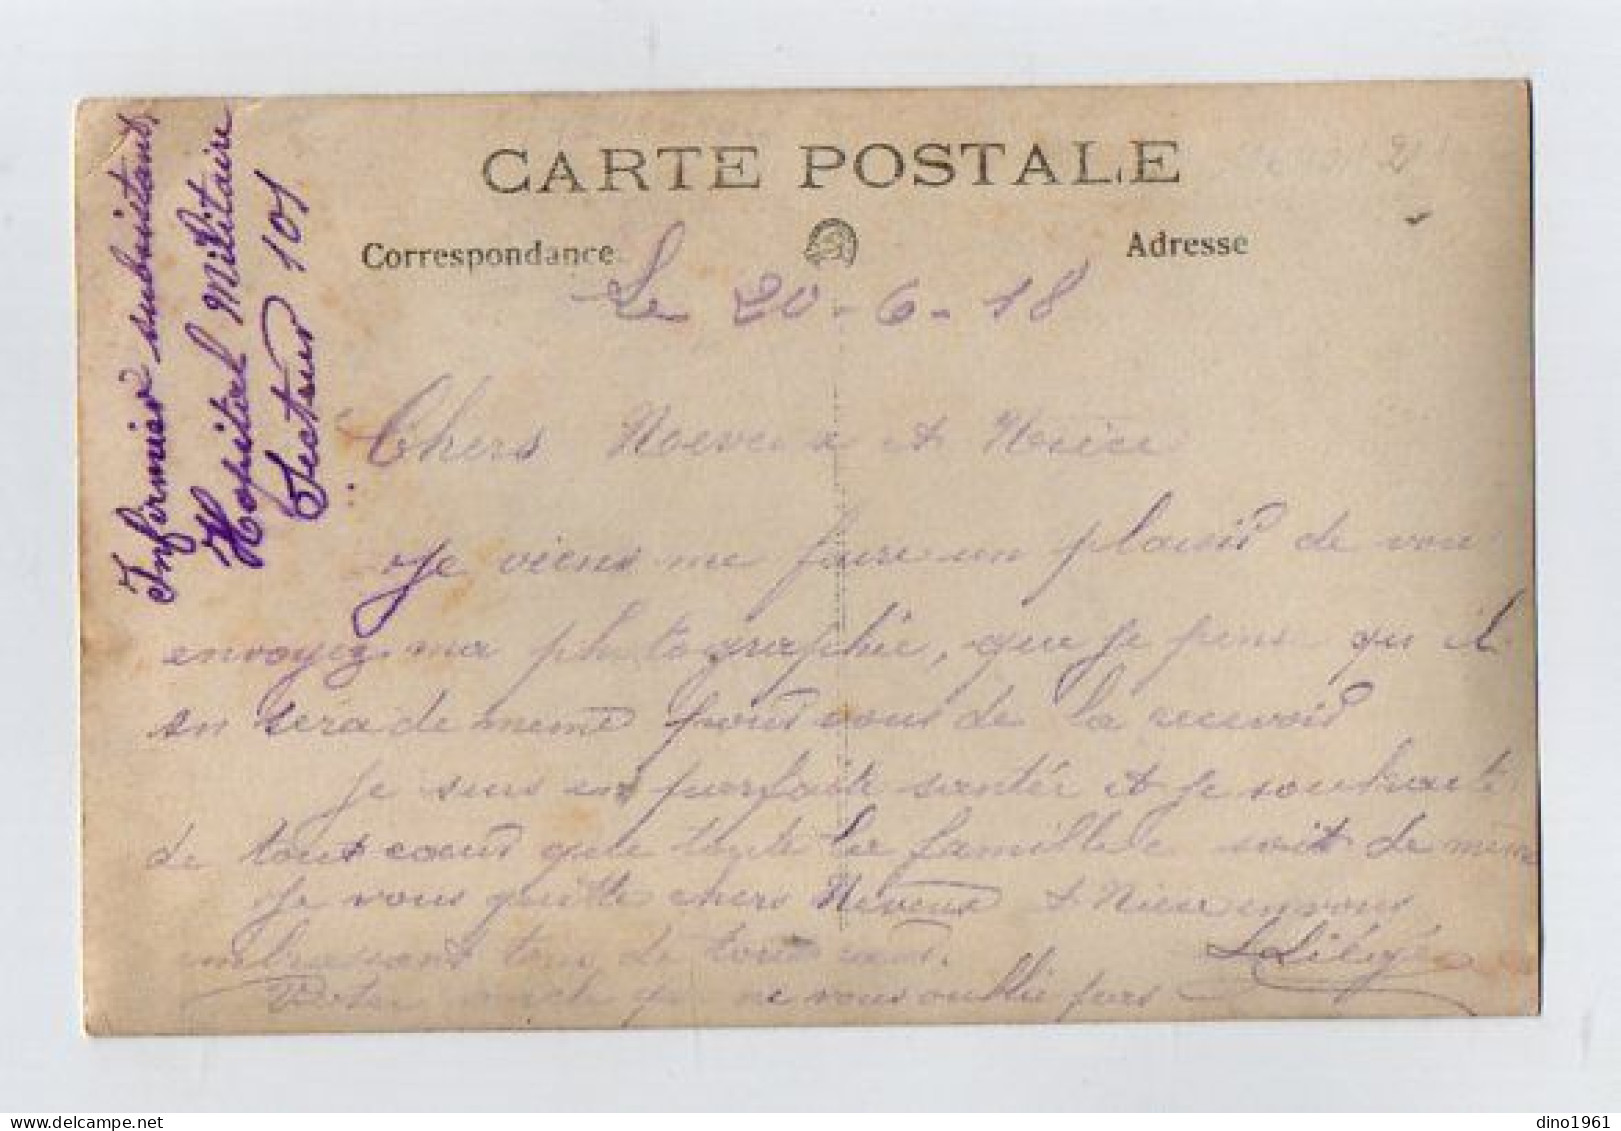 CARTE POSTALE
Correspondance
Adresse
Infirmier subsistant
Hopital Militaire
Secteur 101
Le 20-6-18
Chers Neveux et Nièce
Je viens me faire un plaisir de vou
envoyez ma photographie, que je pense qu il
en sera de meme pour vous de la recevoir
Je suis en parfaite santée et je souhaite
de tout coeur que toute la famille soit de meme
Je vous quitte chers Neveux et Niece en vous
embrassant tous de tout coeur.
L Liégé
Votre oncle qui ne vous oublie pas
dino1961